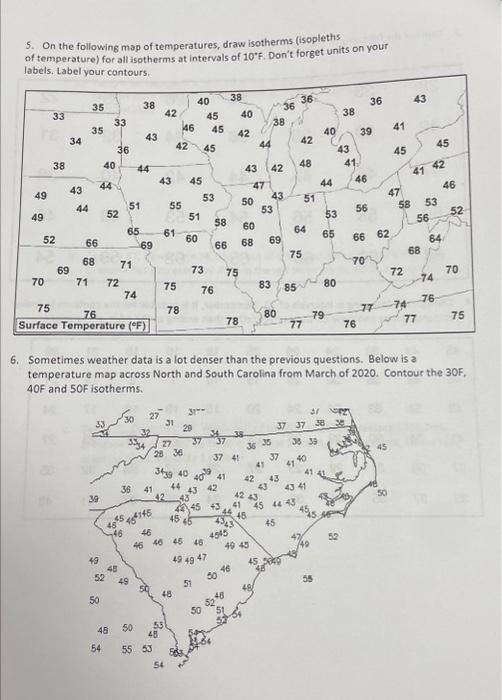 5. On the following map of temperatures, draw isotherms (isopleths
of temperature) for all isotherms at intervals of 10°F. Don't forget units on your
labels. Label your contours.
35 38 40 38 36 36 36 43
33 33 42 45 40 38 38
34 35 43 46 45 42 42 40 39 41
36 42 45 44 43 45 45
38 40 44 43 42 48 41 41 42
49 43 44 43 45 47 44 46 47 46
44 52 51 55 53 50 43 51 56 58 53
49 51 58 53 53 56 52
52 66 65 61 60 60 64 65 66 62 64
69 66 68 69 68
69 68 71 73 75 75 70 72 74 70
70 71 72 75 76 83 85 80
74 76
75 76 78 78 80 79 77 74 77 75
77 76
Surface Temperature (°F)
6. Sometimes weather data is a lot denser than the previous questions. Below is a
temperature map across North and South Carolina from March of 2020. Contour the 30F,
40F and 50F isotherms.
30 27 31
33 31 29 37 37 38
32 34 38
27 37 37 36 35 38 39
28 36 37 41 37 40 45
41 41
40 40 41 42 43 41
36 41 44 43 42 43 43 41 50
39 42 43 42 43
45 43 41 45 44 43
46 45
46 46 46 46 48 49 45 47 49 52
49 49 49 47
48 46
52 49 50 55
50 51 48
50 48 46
52
50 51
48 50 53
48
54 55 53
54